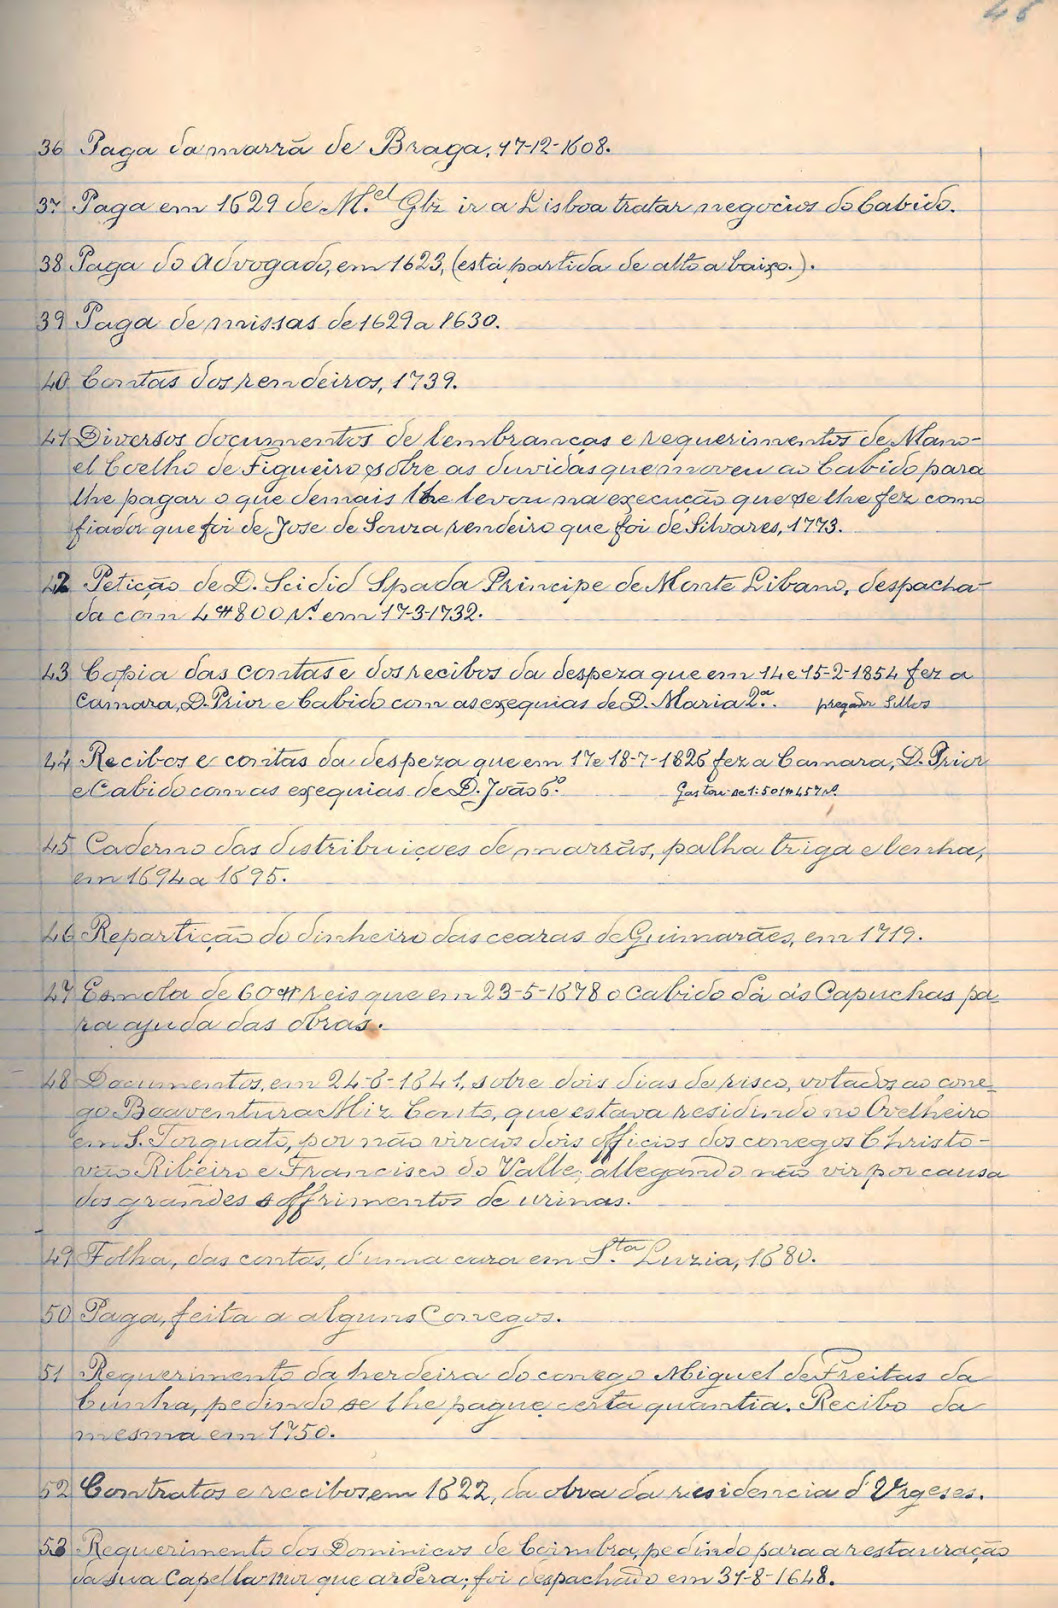 46
36 Paga da marrã de Braga, 17-12-1608.
37 Paga em 1629 de M.el Glz ir a Lisboa tratar negocios do Cabido.
38 Paga do Advogado, em 1623, (está partida de alto a baixo.).
39 Paga de missas de 1629 a 1630.
40 Contas dos rendeiros, 1739.
41 Diversos documentos de lembranças e requerimentos de Mano-
el Coelho de Figueiro sobre as duvidas que moveu ao Cabido para
lhe pagar o que demais lhe levou na execução que se lhe fez como
fiador que foi de Jose de Souza rendeiro que foi de Silvares, 1773.
42 Petição de D. Scidid Spada Principe de Monte Libano, despacha-
da com 4#800 rs. em 17-3-1732.
43 Copia das contas e dos recibos da despeza que em 14 e 15-2-1854 fez a
Camara, D. Prior e Cabido com as exequias de D. Maria 2ª. pregador
44 Recibos e contas da despeza que em 17 e 18-7-1826 fez a Camara, D. Prior
e Cabido com as exequias de D. João 6.º Gastou-se 1:501#457 rs.
45 Caderno das distribuiçoes de marrãs, palha triga e lenha,
em 1694 a 1695.
46 Repartição do dinheiro das cearas de Guimarães, em 1719.
47 Esmola de 60# reis que em 23-5-1678 o Cabido dá ás Capuchas pa-
ra ajuda das obras.
48 Documentos, em 24-8-1641, sobre dois dias de risco, votados ao cone-
go Boaventura Miz Couto, que estava residindo no Ovelheiro
em S. Torquato, por não vir aos dois officios dos conegos Christo-
vão Ribeiro e Francisco do Valle; allegando não vir por causa
dos grandes soffrimentos de urinas.
49 Folha, das contas, d'uma cara em S.ta Luzia, 1680.
50 Paga, feita a alguns Conegos.
51 Requerimento da herdeira do conego Miguel de Freitas da
Cunha, pedindo se lhe pague certa quantia. Recibo da
mesma em 1750.
52 Contratos e recibos em 1622, da obra da residencia d'Urgeses.
53 Requerimento dos Dominicos de Coimbra, pedindo para a restauração
da sua Capella-mor que ardera; foi despachado em 31-8-1648.